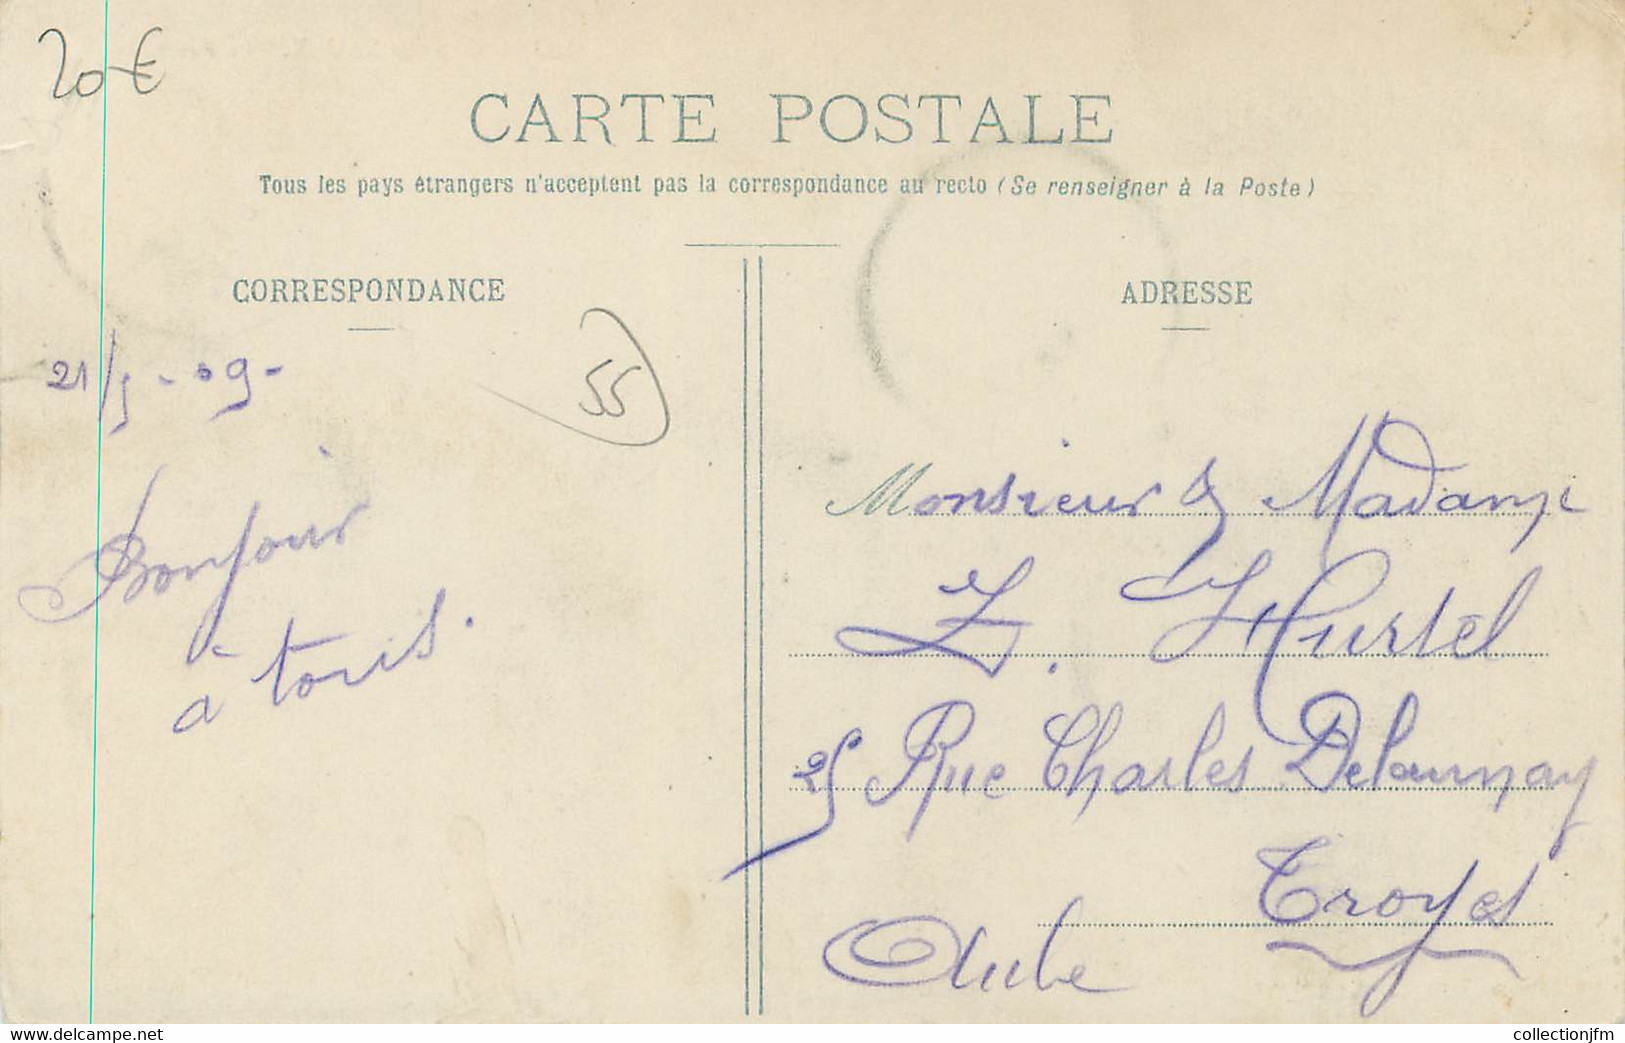 20€
CARTE POSTALE
Tous les pays étrangers n'acceptent pas la correspondance au recto (Se renseigner à la Poste)
CORRESPONDANCE
21/5-09-
55
Bonjour
a tous.
ADRESSE
Monsieur & Madame
Z. Hurtel
25 Rue Charles Delaunay
Troyes
Aube
www.delcampe.net
collectionjfm